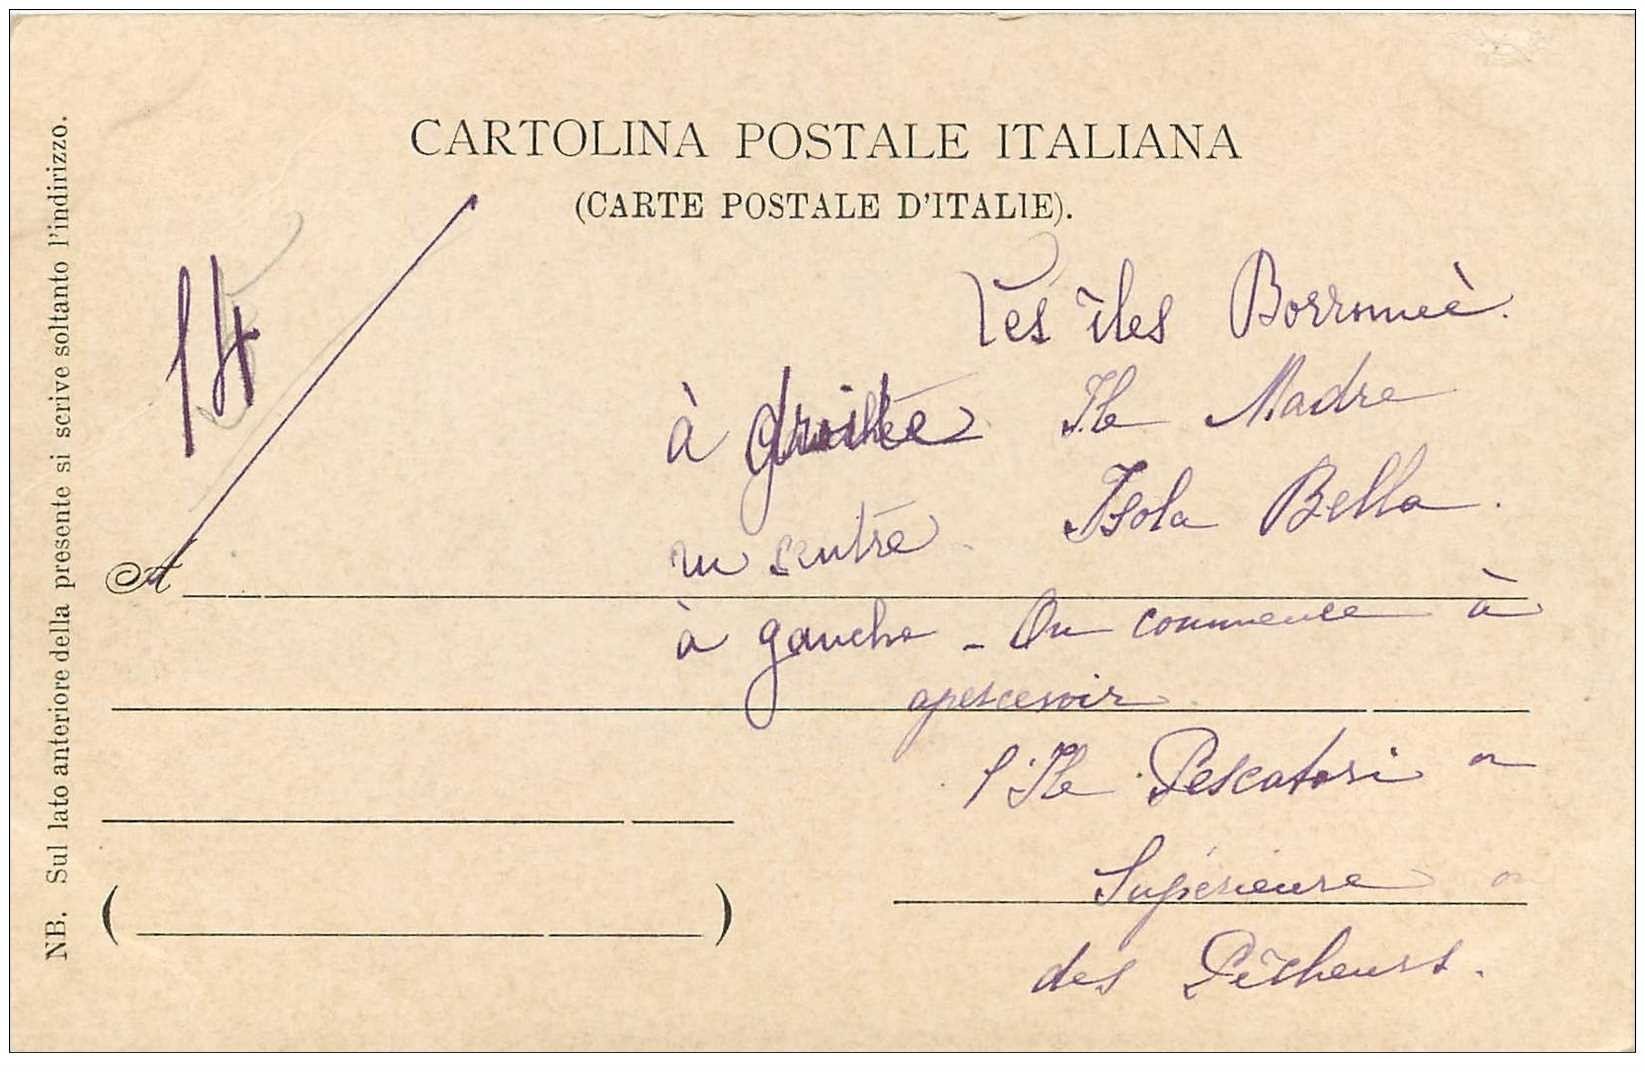 CARTOLINA POSTALE ITALIANA
(CARTE POSTALE D'ITALIE).
NB. Sul lato anteriore della presente si scrive soltanto l'indirizzo.
14
Les îles Borromeè.
à droite Ile Madre
au centre Isola Bella.
A
à gauche - On commence à
apercevoir
l'Ile Pescatori ou
Supérieure ou
des Pêcheurs.